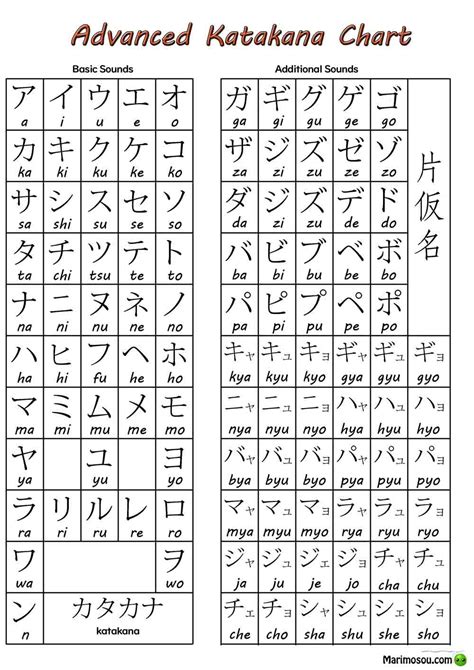 Advanced Katakana Chart
Basic Sounds
ア イ ウ エ オ
a i u e o
カ キ ク ケ コ
ka ki ku ke ko
サ シ ス セ ソ
sa shi su se so
タ チ ツ テ ト
ta chi tsu te to
ナ ニ ヌ ネ ノ
na ni nu ne no
ハ ヒ フ ヘ ホ
ha hi fu he ho
マ ミ ム メ モ
ma mi mu me mo
ヤ ユ ヨ
ya yu yo
ラ リ ル レ ロ
ra ri ru re ro
ワ ヲ
wa wo
ン カタカナ
n katakana
Additional Sounds
ガ ギ グ ゲ ゴ
ga gi gu ge go
ザ ジ ズ ゼ ゾ
za zi zu ze zo
ダ ジ ズ デ ド
da zi zu de do
バ ビ ブ ベ ボ
ba bi bu be bo
パ ピ プ ペ ポ
pa pi pu pe po
片仮名
キャ キュ キョ ギャ ギュ ギョ
kya kyu kyo gya gyu gyo
ニャ ニュ ニョ
nya nyu nyo hya hyu hyo
バャ バュ バョ パャ パュ パョ
bya byu byo pya pyu pyo
マャ マュ マョ ラャ ラュ ラョ
mya myu myo rya ryu ryo
ジャ ジュ ジェ ジョ チャ チュ
ja ju je jo cha chu
チェ チョ シャ シュ シェ ショ
che cho sha shu she sho
Marimosou.com